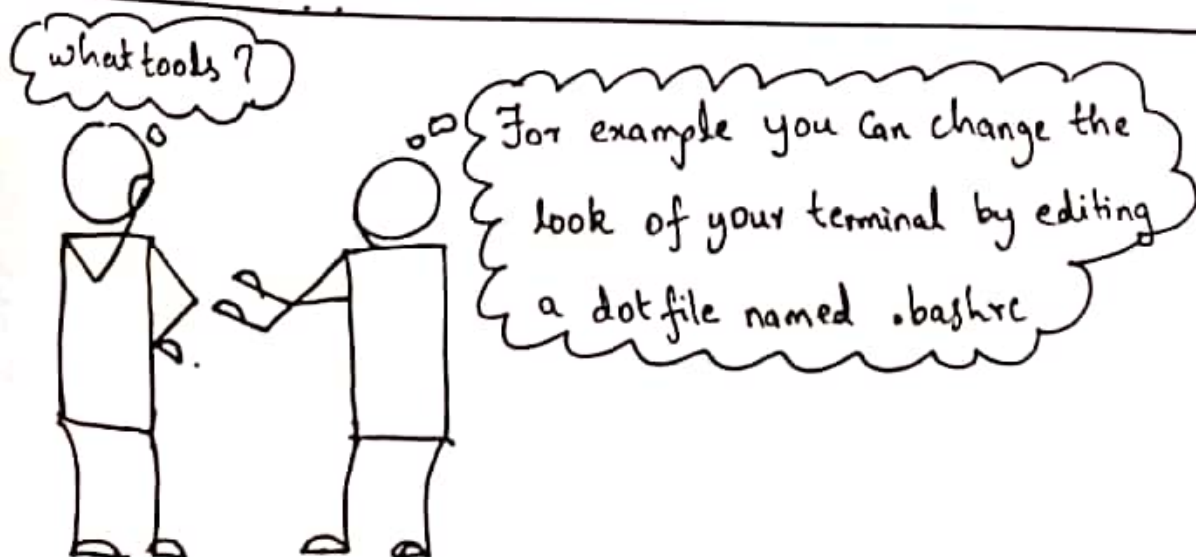 what tools ?
For example you can change the
look of your terminal by editing
a dotfile named .bashrc